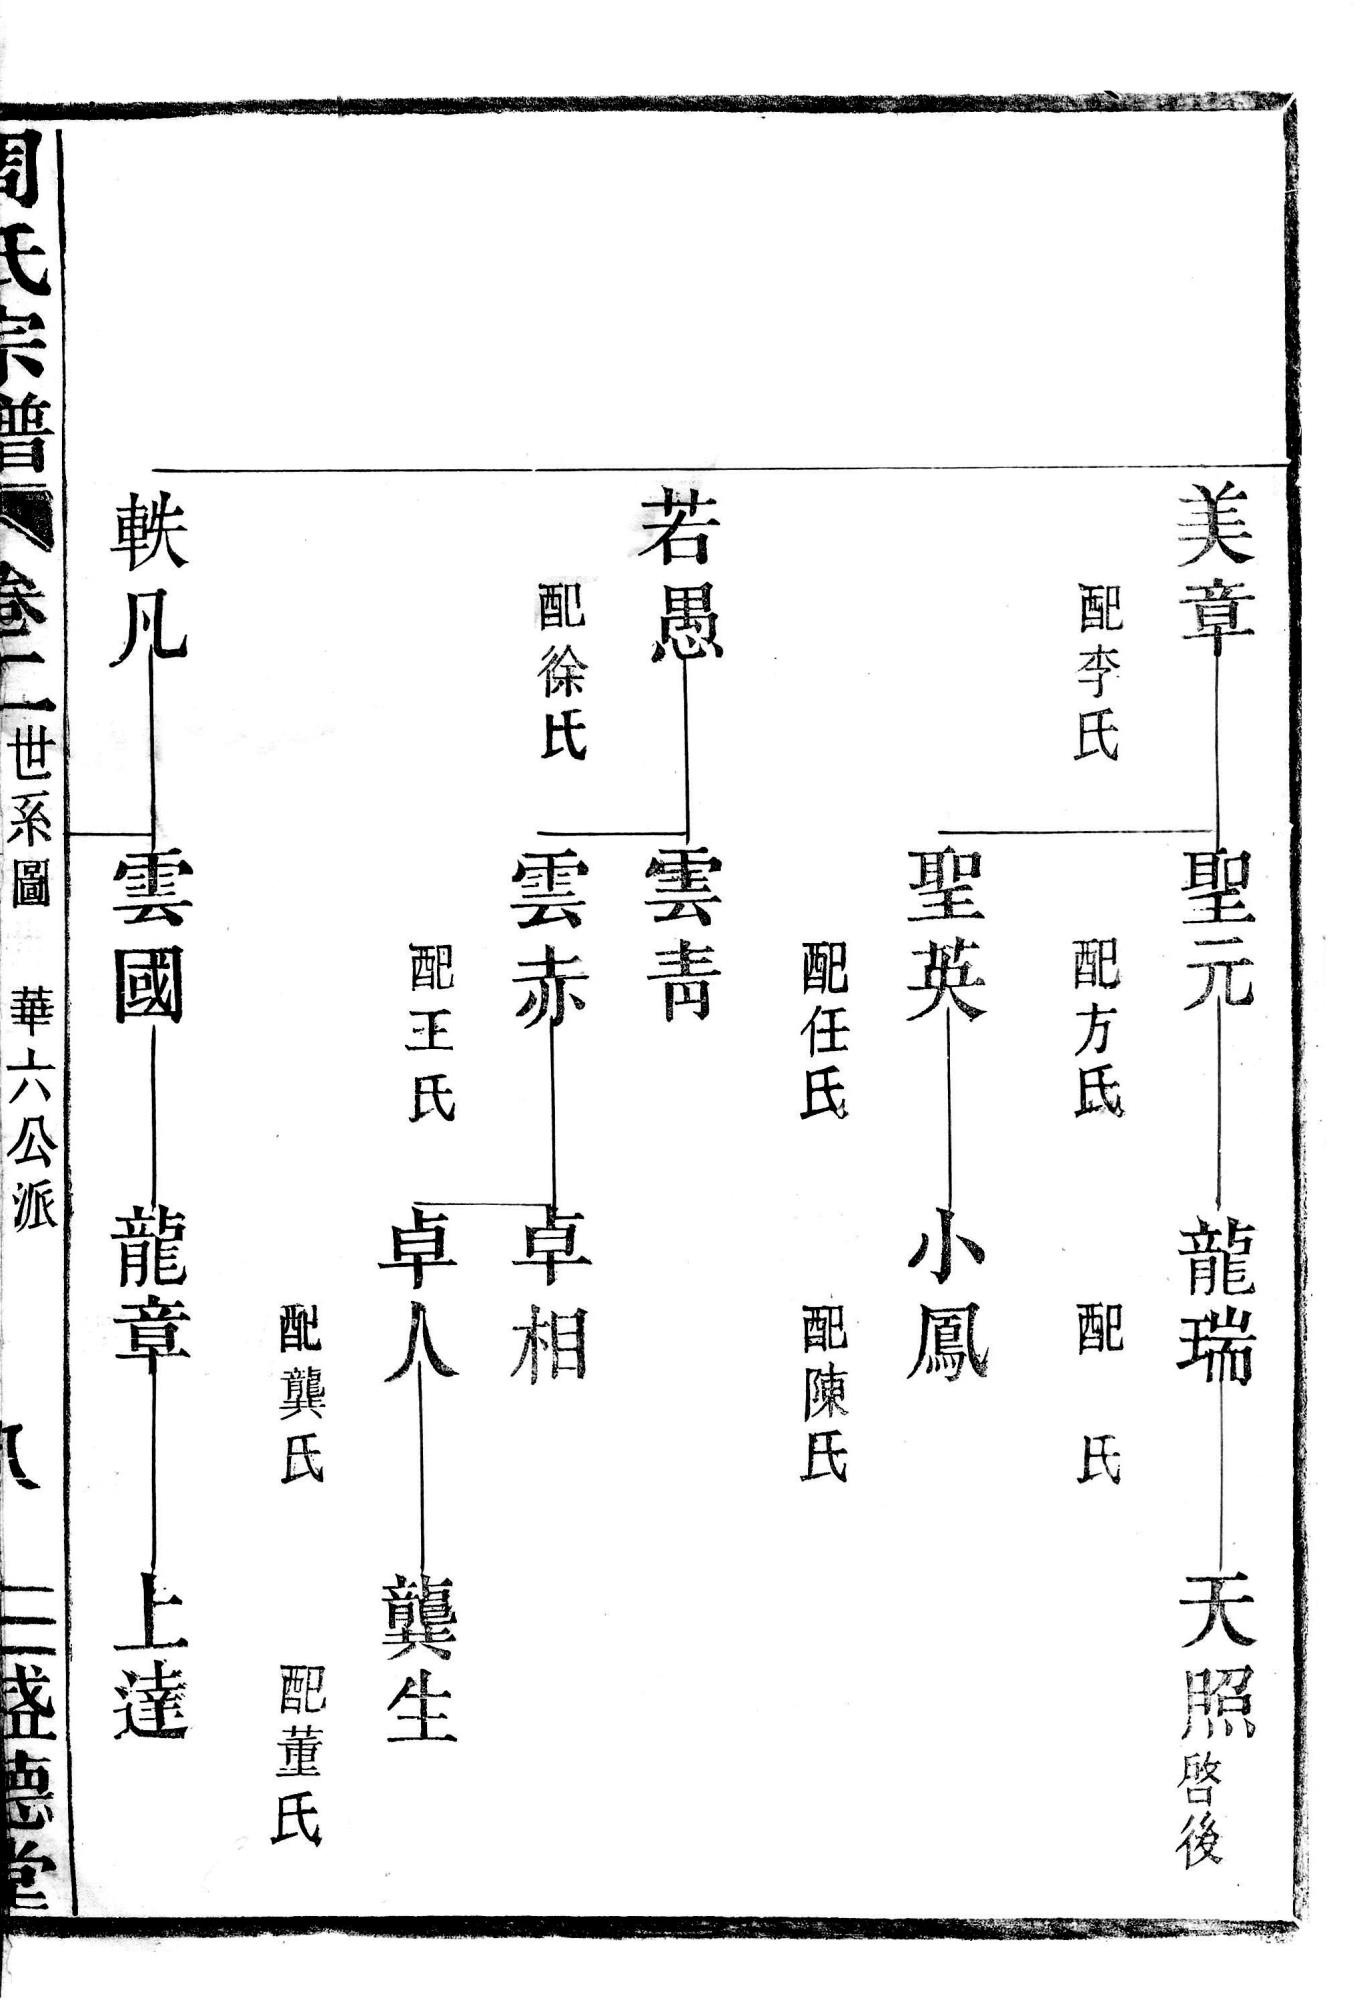 美章
配李氏
聖元
配方氏
龍瑞
配 氏
天照啓後
聖英
配任氏
小鳳
配陳氏
若愚
配徐氏
雲靑
雲赤
配王氏
卓相
卓人
配龔氏
龔生
配董氏
軼凡
雲國
龍章
上達
周氏宗譜 卷二 世系圖 華六公派 八 三盛德堂